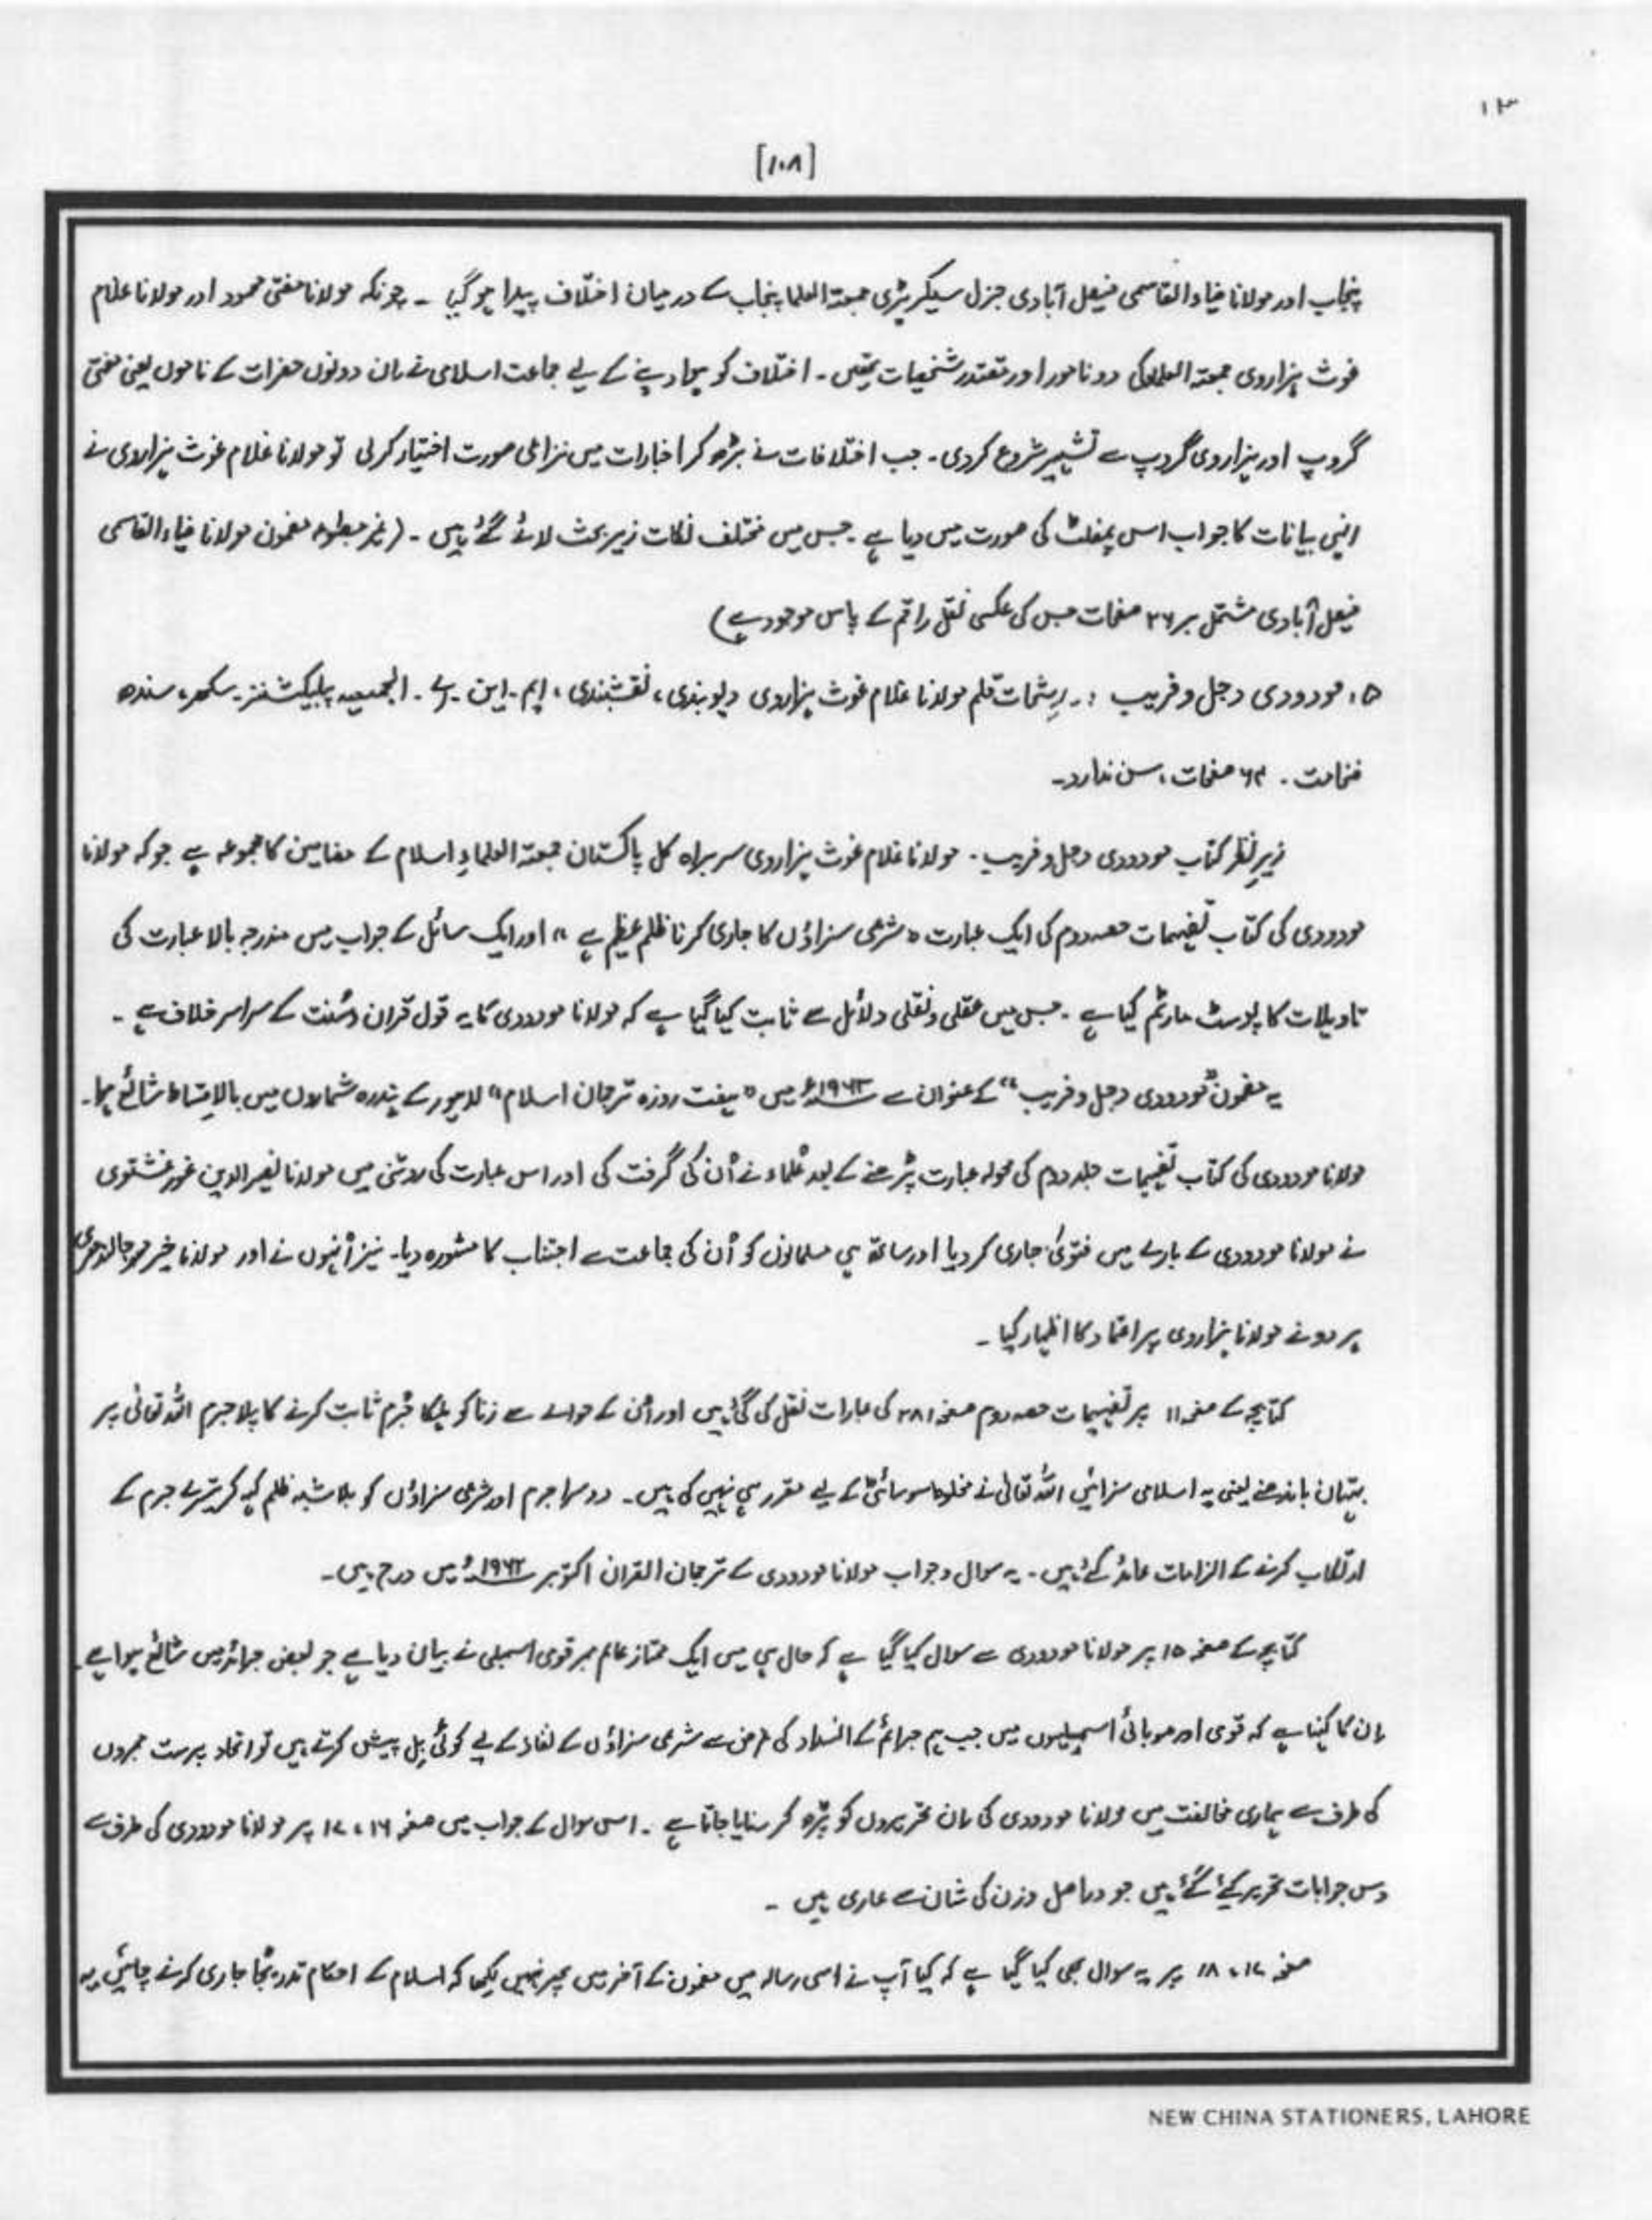 ۱۳
[۱۰۸]
پنجاب اور مولانا ضیاء القاسمی فیصل آبادی جنرل سیکریٹری جمعیتہ العلما پنجاب کے درمیان اختلاف پیدا ہو گیا ۔ چونکہ مولانا مفتی محمود اور مولانا غلام
غوث ہزاروی جمعیتہ العلماء کی دو نامور اور مقتدر شخصیات تھیں ۔ اختلاف کو ہوا دینے کے لیے جماعت اسلامی نے اِن دونوں حضرات کے ناموں یعنی مفتی
گروپ اور ہزاروی گروپ سے تشہیر شروع کردی ۔ جب اختلافات نے بڑھ کر اخبارات میں نزاعی صورت اختیار کرلی تو مولانا غلام غوث ہزاروی نے
انہی بیانات کا جواب اس پمفلٹ کی صورت میں دیا ہے ۔ جس میں مختلف نکات زیر بحث لائے گئے ہیں ۔ (غیر مطبوعہ مضمون مولانا ضیاء القاسمی
فیصل آبادی مشتمل بر ۲۶ صفحات جس کی عکسی نقل راقم کے پاس موجود ہے)
۵۔ مودودی دجل و فریب :۔ رشحات قلم مولانا غلام غوث ہزاروی دیوبندی ، نقشبندی ، ایم ۔ این ۔ اے ۔ الجمعیہ پبلیکشنز ۔ سکھر ، سندھ
ضخامت ۔ ۶۴ صفحات ، سن ندارد ۔
زیرِ نظر کتاب مودودی دجل و فریب ۔ مولانا غلام غوث ہزاروی سربراہ کل پاکستان جمعیتہ العلماءِ اسلام کے مضامین کا مجموعہ ہے جو کہ مولانا
مودودی کی کتاب تفہیمات حصہ دوم کی ایک عبارت "شرعی سزاؤں کا جاری کرنا ظلم عظیم ہے" اور ایک سائل کے جواب میں مندرجہ بالا عبارت کی
تاویلات کا پوسٹ مارٹم کیا ہے ۔ جس میں عقلی و نقلی دلائل سے ثابت کیا گیا ہے کہ مولانا مودودی کا یہ قول قرآن و سُنت کے سراسر خلاف ہے ۔
یہ مضمون "مودودی دجل و فریب" کے عنوان سے ۱۹۶۳ء میں "ہفت روزہ ترجمان اسلام" لاہور کے پندرہ شماروں میں بالاقساط شائع ہوا ۔
مولانا مودودی کی کتاب تفہیمات جلد دوم کی محولہ عبارت پڑھنے کے بعد عُلماء نے اُن کی گرفت کی اور اس عبارت کی روشنی میں مولانا نصیر الدین غورغشتوی
نے مولانا مودودی کے بارے میں فتویٰ جاری کر دیا اور ساتھ ہی مسلمانوں کو اُن کی جماعت سے اجتناب کا مشورہ دیا ۔ نیز اُنہوں نے اور مولانا خیر محمد جالندھری
ہر دو نے مولانا ہزاروی پر اعتماد کا اظہار کیا ۔
کتابچہ کے صفحہ ۱۱ پر تفہیمات حصہ دوم صفحہ ۲۸۱ کی عبارات نقل کی گئی ہیں اور اُن کے حوالے سے زنا کو ہلکا جُرم ثابت کرنے کا پہلا جرم اللہ تعالیٰ پر
بہتان باندھنے یعنی یہ اسلامی سزائیں اللہ تعالیٰ نے مخلوط سوسائٹی کے لیے مقرر ہی نہیں کی ہیں ۔ دوسرا جرم اور شرعی سزاؤں کو بلا شبہ ظلم کہہ کر تیسرے جرم کے
ارتکاب کرنے کے الزامات عائد کئے ہیں ۔ یہ سوال و جواب مولانا مودودی کے ترجمان القران اکتوبر ۱۹۶۲ء میں درج ہیں ۔
کتابچے کے صفحہ ۱۵ پر مولانا مودودی سے سوال کیا گیا ہے کہ حال ہی میں ایک ممتاز عالم ممبر قومی اسمبلی نے بیان دیا ہے جو بعض جرائد میں شائع ہوا ہے ۔
اِن کا کہنا ہے کہ قومی اور صوبائی اسمبلیوں میں جب ہم جرائم کے انسداد کی غرض سے شرعی سزاؤں کے نفاذ کے لیے کوئی بِل پیش کرتے ہیں تو اتحاد پرست ممبروں
کی طرف سے ہماری مخالفت میں مولانا مودودی کی اِن تحریروں کو پڑھ کر سنایا جاتا ہے ۔ اس سوال کے جواب میں صفحہ ۱۶ ، ۱۷ پر مولانا مودودی کی طرف سے
دس جوابات تحریر کیے گئے ہیں جو دراصل وزن کی شان سے عاری ہیں ۔
صفحہ ۱۷ ، ۱۸ پر یہ سوال بھی کیا گیا ہے کہ کیا آپ نے اسی رسالہ میں مضمون کے آخر میں پھر نہیں لکھا کہ اسلام کے احکام تدریجاً جاری کرنے چاہئیں یہ
NEW CHINA STATIONERS, LAHORE